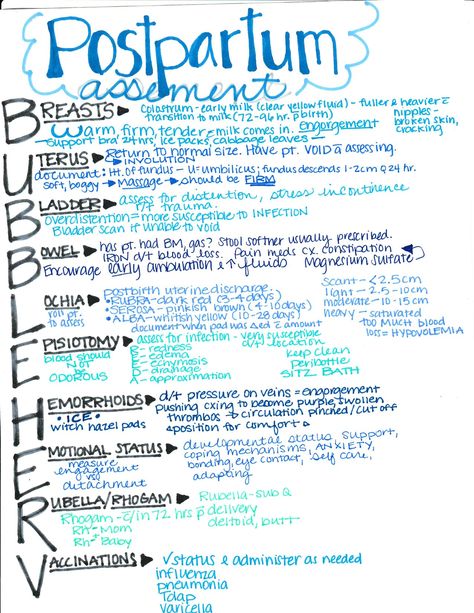 Postpartum
assement
BREASTS ▸ Colostrum - early milk (clear yellow fluid) - fuller & heavier c̄
transition to milk (72-96 hr. p̄ birth)
nipples -
broken skin,
cracking
warm, firm, tender c̄ milk comes in. engorgement
support bra 24 hrs, ice packs, cabbage leaves
UTERUS ▸ Return to normal size. Have pt. VOID ā assessing.
➤ INVOLUTION
document: Ht. of fundus - U = umbilicus; fundus descends 1-2cm q 24 hr.
soft, boggy → massage → should be FIRM
BLADDER ▸ assess for distention, stress incontinence
r/t trauma.
overdistention = more susceptible to INFECTION
Bladder scan if unable to void
BOWEL ▸ has pt. had BM, gas? Stool softner usually prescribed.
IRON d/t blood loss. Pain meds cx. constipation
Encourage early ambulation & ↑ fluids Magnesium sulfate
LOCHIA ▸ postbirth uterine discharge.
roll pt.
to assess
• RUBRA - dark red (3-4 days)
• SEROSA - pinkish brown (4-10 days)
• ALBA - whitish yellow (10-28 days)
document when pad was ∆ed & amount
scant - <2.5cm
light - 2.5-10cm
moderate - 10-15cm
heavy - saturated
too MUCH blood
loss = HYPOVOLEMIA
EPISIOTOMY ▸ assess for infection - very susceptible
d/t location
blood should
NOT
be
ODOROUS
R - redness
E - edema
E - ecchymosis
D - drainage
A - approximation
keep clean
peribottle
SITZ BATH
HEMORRHOIDS ▸ d/t pressure on veins = engorgement
• ICE •
witch hazel pads
pushing cxing to become purple, swollen
thrombos → circulation pinched/cut off
position for comfort
EMOTIONAL STATUS ▸ developmental status, support,
measure
engagement
vs
detachment
coping mechanisms, ANXIETY,
bonding, eye contact, self care,
adapting
RUBELLA/RHOGAM ▸ Rubella - sub Q
Rhogam - c̄/in 72 hrs p̄ delivery
deltoid, butt
Rh⁻ Mom
Rh⁺ Baby
VACCINATIONS ▸ √ status & administer as needed
influenza
pneumonia
Tdap
varicella